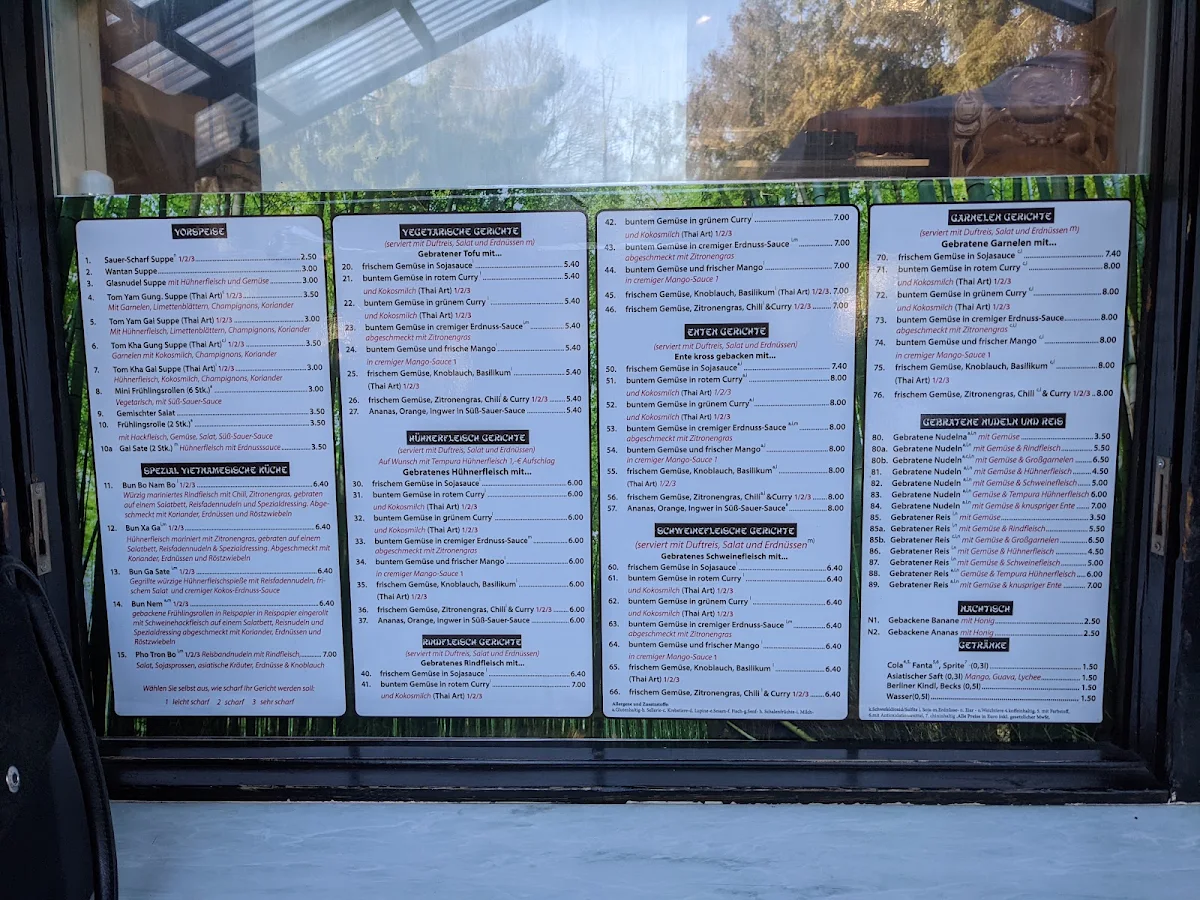 VORSPEISE
1. Sauer-Scharf Suppe 1/2/3 2.50
2. Wantan Suppe 3.00
3. Glasnudel Suppe mit Hühnerfleisch und Gemüse 3.00
4. Tom Yam Gung. Suppe (Thai Art) 1/2/3 3.50
Mit Garnelen, Limettenblättern, Champignons, Koriander
5. Tom Yam Gai Suppe (Thai Art) 1/2/3 3.00
Mit Hühnerfleisch, Limettenblättern, Champignons, Koriander
6. Tom Kha Gung Suppe (Thai Art) 1/2/3 3.50
Garnelen mit Kokosmilch, Champignons, Koriander
7. Tom Kha Gai Suppe (Thai Art) 1/2/3 3.00
Hühnerfleisch, Kokosmilch, Champignons, Koriander
8. Mini Frühlingsrollen (6 Stk.) 3.00
Vegetarisch, mit Süß-Sauer-Sauce
9. Gemischter Salat 3.50
10. Frühlingsrolle (2 Stk.) 3.50
mit Hackfleisch, Gemüse, Salat, Süß-Sauer-Sauce
10a Gai Sate (2 Stk.) Hühnerfleisch mit Erdnusssauce 3.50
SPEZIAL VIETNAMESISCHE KÜCHE
11. Bun Bo Nam Bo 1/2/3 6.40
Würzig mariniertes Rindfleisch mit Chili, Zitronengras, gebraten
auf einem Salatbett, Reisfadennudeln und Spezialdressing. Abge-
schmeckt mit Koriander, Erdnüssen und Röstzwiebeln
12. Bun Xa Ga 1/2/3 6.40
Hühnerfleisch mariniert mit Zitronengras, gebraten auf einem
Salatbett, Reisfadennudeln & Spezialdressing. Abgeschmeckt mit
Koriander, Erdnüssen und Röstzwiebeln
13. Bun Ga Sate 1/2/3 6.40
Gegrillte würzige Hühnerfleischspieße mit Reisfadennudeln, fri-
schem Salat und cremiger Kokos-Erdnuss-Sauce
14. Bun Nem 1/2/3 6.40
gebackene Frühlingsrollen in Reispapier in Reispapier eingerollt
mit Schweinehackfleisch auf einem Salatbett, Reisnudeln und
Spezialdressing abgeschmeckt mit Koriander, Erdnüssen und
Röstzwiebeln
15. Pho Tron Bo 1/2/3 Reisbandnudeln mit Rindfleisch 7.00
Salat, Sojasprossen, asiatische Kräuter, Erdnüsse & Knoblauch
Wählen Sie selbst aus, wie scharf Ihr Gericht werden soll:
1 leicht scharf 2 scharf 3 sehr scharf
VEGETARISCHE GERICHTE
(serviert mit Duftreis, Salat und Erdnüssen m)
Gebratener Tofu mit...
20. frischem Gemüse in Sojasauce 5.40
21. buntem Gemüse in rotem Curry 5.40
und Kokosmilch (Thai Art) 1/2/3
22. buntem Gemüse in grünem Curry 5.40
und Kokosmilch (Thai Art) 1/2/3
23. buntem Gemüse in cremiger Erdnuss-Sauce 5.40
abgeschmeckt mit Zitronengras
24. buntem Gemüse und frische Mango 5.40
in cremiger Mango-Sauce 1
25. frischem Gemüse, Knoblauch, Basilikum 5.40
(Thai Art) 1/2/3
26. frischem Gemüse, Zitronengras, Chili & Curry 1/2/3 5.40
27. Ananas, Orange, Ingwer in Süß-Sauer-Sauce 5.40
HÜHNERFLEISCH GERICHTE
(serviert mit Duftreis, Salat und Erdnüssen)
Auf Wunsch mit Tempura Hühnerfleisch 1,-€ Aufschlag
Gebratenes Hühnerfleisch mit...
30. frischem Gemüse in Sojasauce 6.00
31. buntem Gemüse in rotem Curry 6.00
und Kokosmilch (Thai Art) 1/2/3
32. buntem Gemüse in grünem Curry 6.00
und Kokosmilch (Thai Art) 1/2/3
33. buntem Gemüse in cremiger Erdnuss-Sauce 6.00
abgeschmeckt mit Zitronengras
34. buntem Gemüse und frischer Mango 6.00
in cremiger Mango-Sauce 1
35. frischem Gemüse, Knoblauch, Basilikum 6.00
(Thai Art) 1/2/3
36. frischem Gemüse, Zitronengras, Chili & Curry 1/2/3 6.00
37. Ananas, Orange, Ingwer in Süß-Sauer-Sauce 6.00
RINDFLEISCH GERICHTE
(serviert mit Duftreis, Salat und Erdnüssen)
Gebratenes Rindfleisch mit...
40. frischem Gemüse in Sojasauce 6.40
41. buntem Gemüse in rotem Curry 7.00
und Kokosmilch (Thai Art) 1/2/3
42. buntem Gemüse in grünem Curry 7.00
und Kokosmilch (Thai Art) 1/2/3
43. buntem Gemüse in cremiger Erdnuss-Sauce 7.00
abgeschmeckt mit Zitronengras
44. buntem Gemüse und frischer Mango 7.00
in cremiger Mango-Sauce 1
45. frischem Gemüse, Knoblauch, Basilikum (Thai Art) 1/2/3. 7.00
46. frischem Gemüse, Zitronengras, Chili & Curry 1/2/3 7.00
ENTEN GERICHTE
(serviert mit Duftreis, Salat und Erdnüssen)
Ente kross gebacken mit...
50. frischem Gemüse in Sojasauce 7.40
51. buntem Gemüse in rotem Curry 8.00
und Kokosmilch (Thai Art) 1/2/3
52. buntem Gemüse in grünem Curry 8.00
und Kokosmilch (Thai Art) 1/2/3
53. buntem Gemüse in cremiger Erdnuss-Sauce 8.00
abgeschmeckt mit Zitronengras
54. buntem Gemüse und frischer Mango 8.00
in cremiger Mango-Sauce 1
55. frischem Gemüse, Knoblauch, Basilikum 8.00
(Thai Art) 1/2/3
56. frischem Gemüse, Zitronengras, Chili & Curry 1/2/3 8.00
57. Ananas, Orange, Ingwer in Süß-Sauer-Sauce 8.00
SCHWEINEFLEISCHE GERICHTE
(serviert mit Duftreis, Salat und Erdnüssen m)
Gebratenes Schweinefleisch mit...
60. frischem Gemüse in Sojasauce 6.40
61. buntem Gemüse in rotem Curry 6.40
und Kokosmilch (Thai Art) 1/2/3
62. buntem Gemüse in grünem Curry 6.40
und Kokosmilch (Thai Art) 1/2/3
63. buntem Gemüse in cremiger Erdnuss-Sauce 6.40
abgeschmeckt mit Zitronengras
64. buntem Gemüse und frischer Mango 6.40
in cremiger Mango-Sauce 1
65. frischem Gemüse, Knoblauch, Basilikum 6.40
(Thai Art) 1/2/3
66. frischem Gemüse, Zitronengras, Chili & Curry 1/2/3 6.40
Allergene und Zusatzstoffe
GARNELEN GERICHTE
(serviert mit Duftreis, Salat und Erdnüssen m)
Gebratene Garnelen mit...
70. frischem Gemüse in Sojasauce 7.40
71. buntem Gemüse in rotem Curry 8.00
und Kokosmilch (Thai Art) 1/2/3
72. buntem Gemüse in grünem Curry 8.00
und Kokosmilch (Thai Art) 1/2/3
73. buntem Gemüse in cremiger Erdnuss-Sauce 8.00
abgeschmeckt mit Zitronengras
74. buntem Gemüse und frischer Mango 8.00
in cremiger Mango-Sauce 1
75. frischem Gemüse, Knoblauch, Basilikum 8.00
(Thai Art) 1/2/3
76. frischem Gemüse, Zitronengras, Chili & Curry 1/2/3 8.00
GEBRATENE NUDELN UND REIS
80. Gebratene Nudeln mit Gemüse 3.50
80a. Gebratene Nudeln mit Gemüse & Rindfleisch 5.50
80b. Gebratene Nudeln mit Gemüse & Großgarnelen 6.50
81. Gebratene Nudeln mit Gemüse & Hühnerfleisch 4.50
82. Gebratene Nudeln mit Gemüse & Schweinefleisch 5.00
83. Gebratene Nudeln Gemüse & Tempura Hühnerfleisch 6.00
84. Gebratene Nudeln mit Gemüse & knuspriger Ente 7.00
85. Gebratener Reis mit Gemüse 3.50
85a. Gebratener Reis mit Gemüse & Rindfleisch 5.50
85b. Gebratener Reis mit Gemüse & Großgarnelen 6.50
86. Gebratener Reis mit Gemüse & Hühnerfleisch 4.50
87. Gebratener Reis mit Gemüse & Schweinefleisch 5.00
88. Gebratener Reis Gemüse & Tempura Hühnerfleisch 6.00
89. Gebratener Reis mit Gemüse & knuspriger Ente 7.00
NACHTISCH
N1. Gebackene Banane mit Honig 2.50
N2. Gebackene Ananas mit Honig 2.50
GETRÄNKE
Cola Fanta, Sprite (0,3l) 1.50
Asiatischer Saft (0,3l) Mango, Guava, Lychee 1.50
Berliner Kindl, Becks (0,5l) 1.50
Wasser(0,5l) 1.50
Alle Preise in Euro inkl. gesetzlicher MwSt.